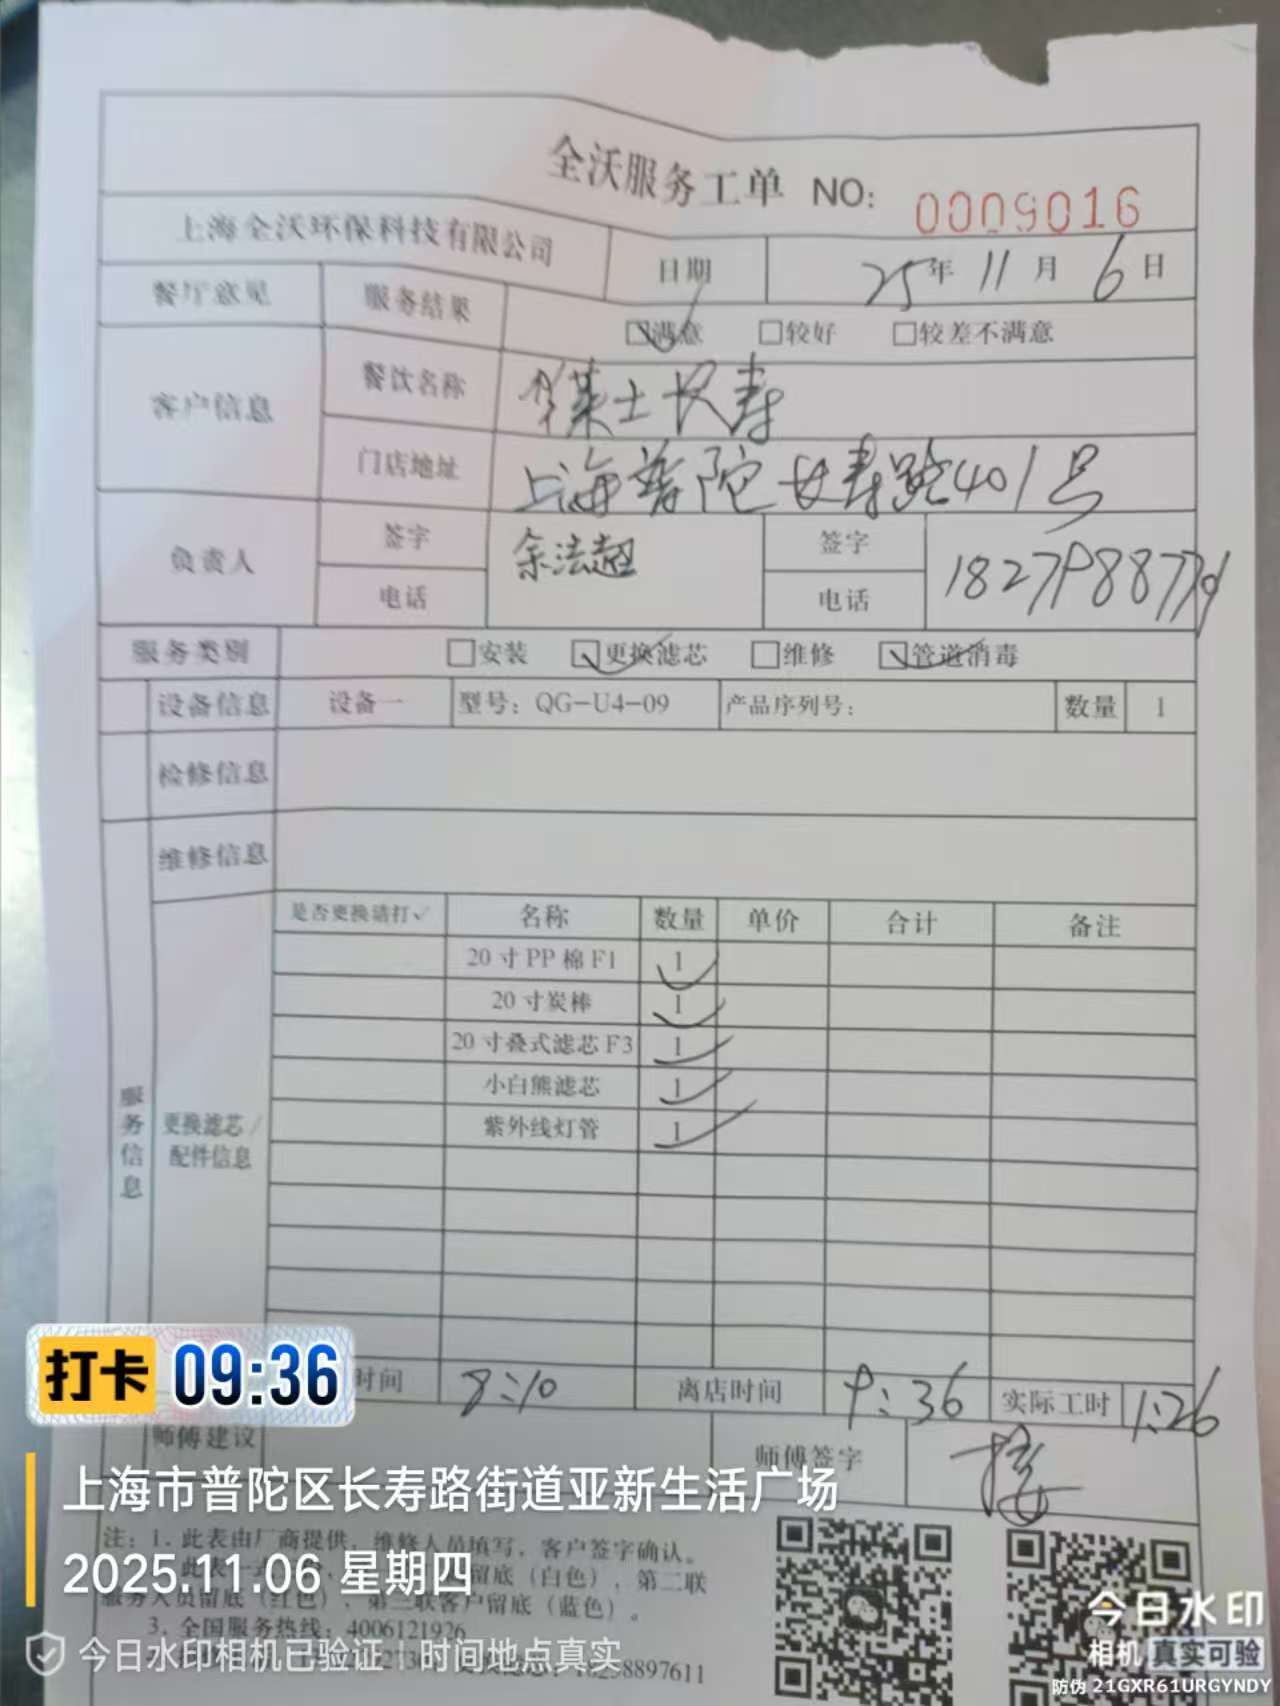 全沃服务工单 NO: 0009016
上海全沃环保科技有限公司 日期 25年11月6日
餐厅意见 服务结果 ☑满意 □较好 □较差不满意
客户信息 餐饮名称 莱士长寿
门店地址 上海普陀长寿路401号
负责人 签字 余法超 签字
电话 电话 1827988779
服务类别 □安装 ☑更换滤芯 □维修 ☑管道消毒
设备信息 设备一 型号：QG-U4-09 产品序列号： 数量 1
检修信息
维修信息
是否更换请打√ 名称 数量 单价 合计 备注
20寸PP棉F1 1
20寸炭棒 1
20寸叠式滤芯F3 1
小白熊滤芯 1
紫外线灯管 1
服务信息
更换滤芯/
配件信息
时间 8:10 离店时间 9:36 实际工时 1:26
师傅建议 师傅签字
注：1. 此表由厂商提供，维修人员填写，客户签字确认。
留底（白色），第二联
服务人员留底（红色），第三联客户留底（蓝色）。
3. 全国服务热线：4006121926
18258897611
打卡 09:36
上海市普陀区长寿路街道亚新生活广场
2025.11.06 星期四
今日水印相机已验证 | 时间地点真实
今日水印
相机 真实可验
防伪 21GXR61URGYNDY